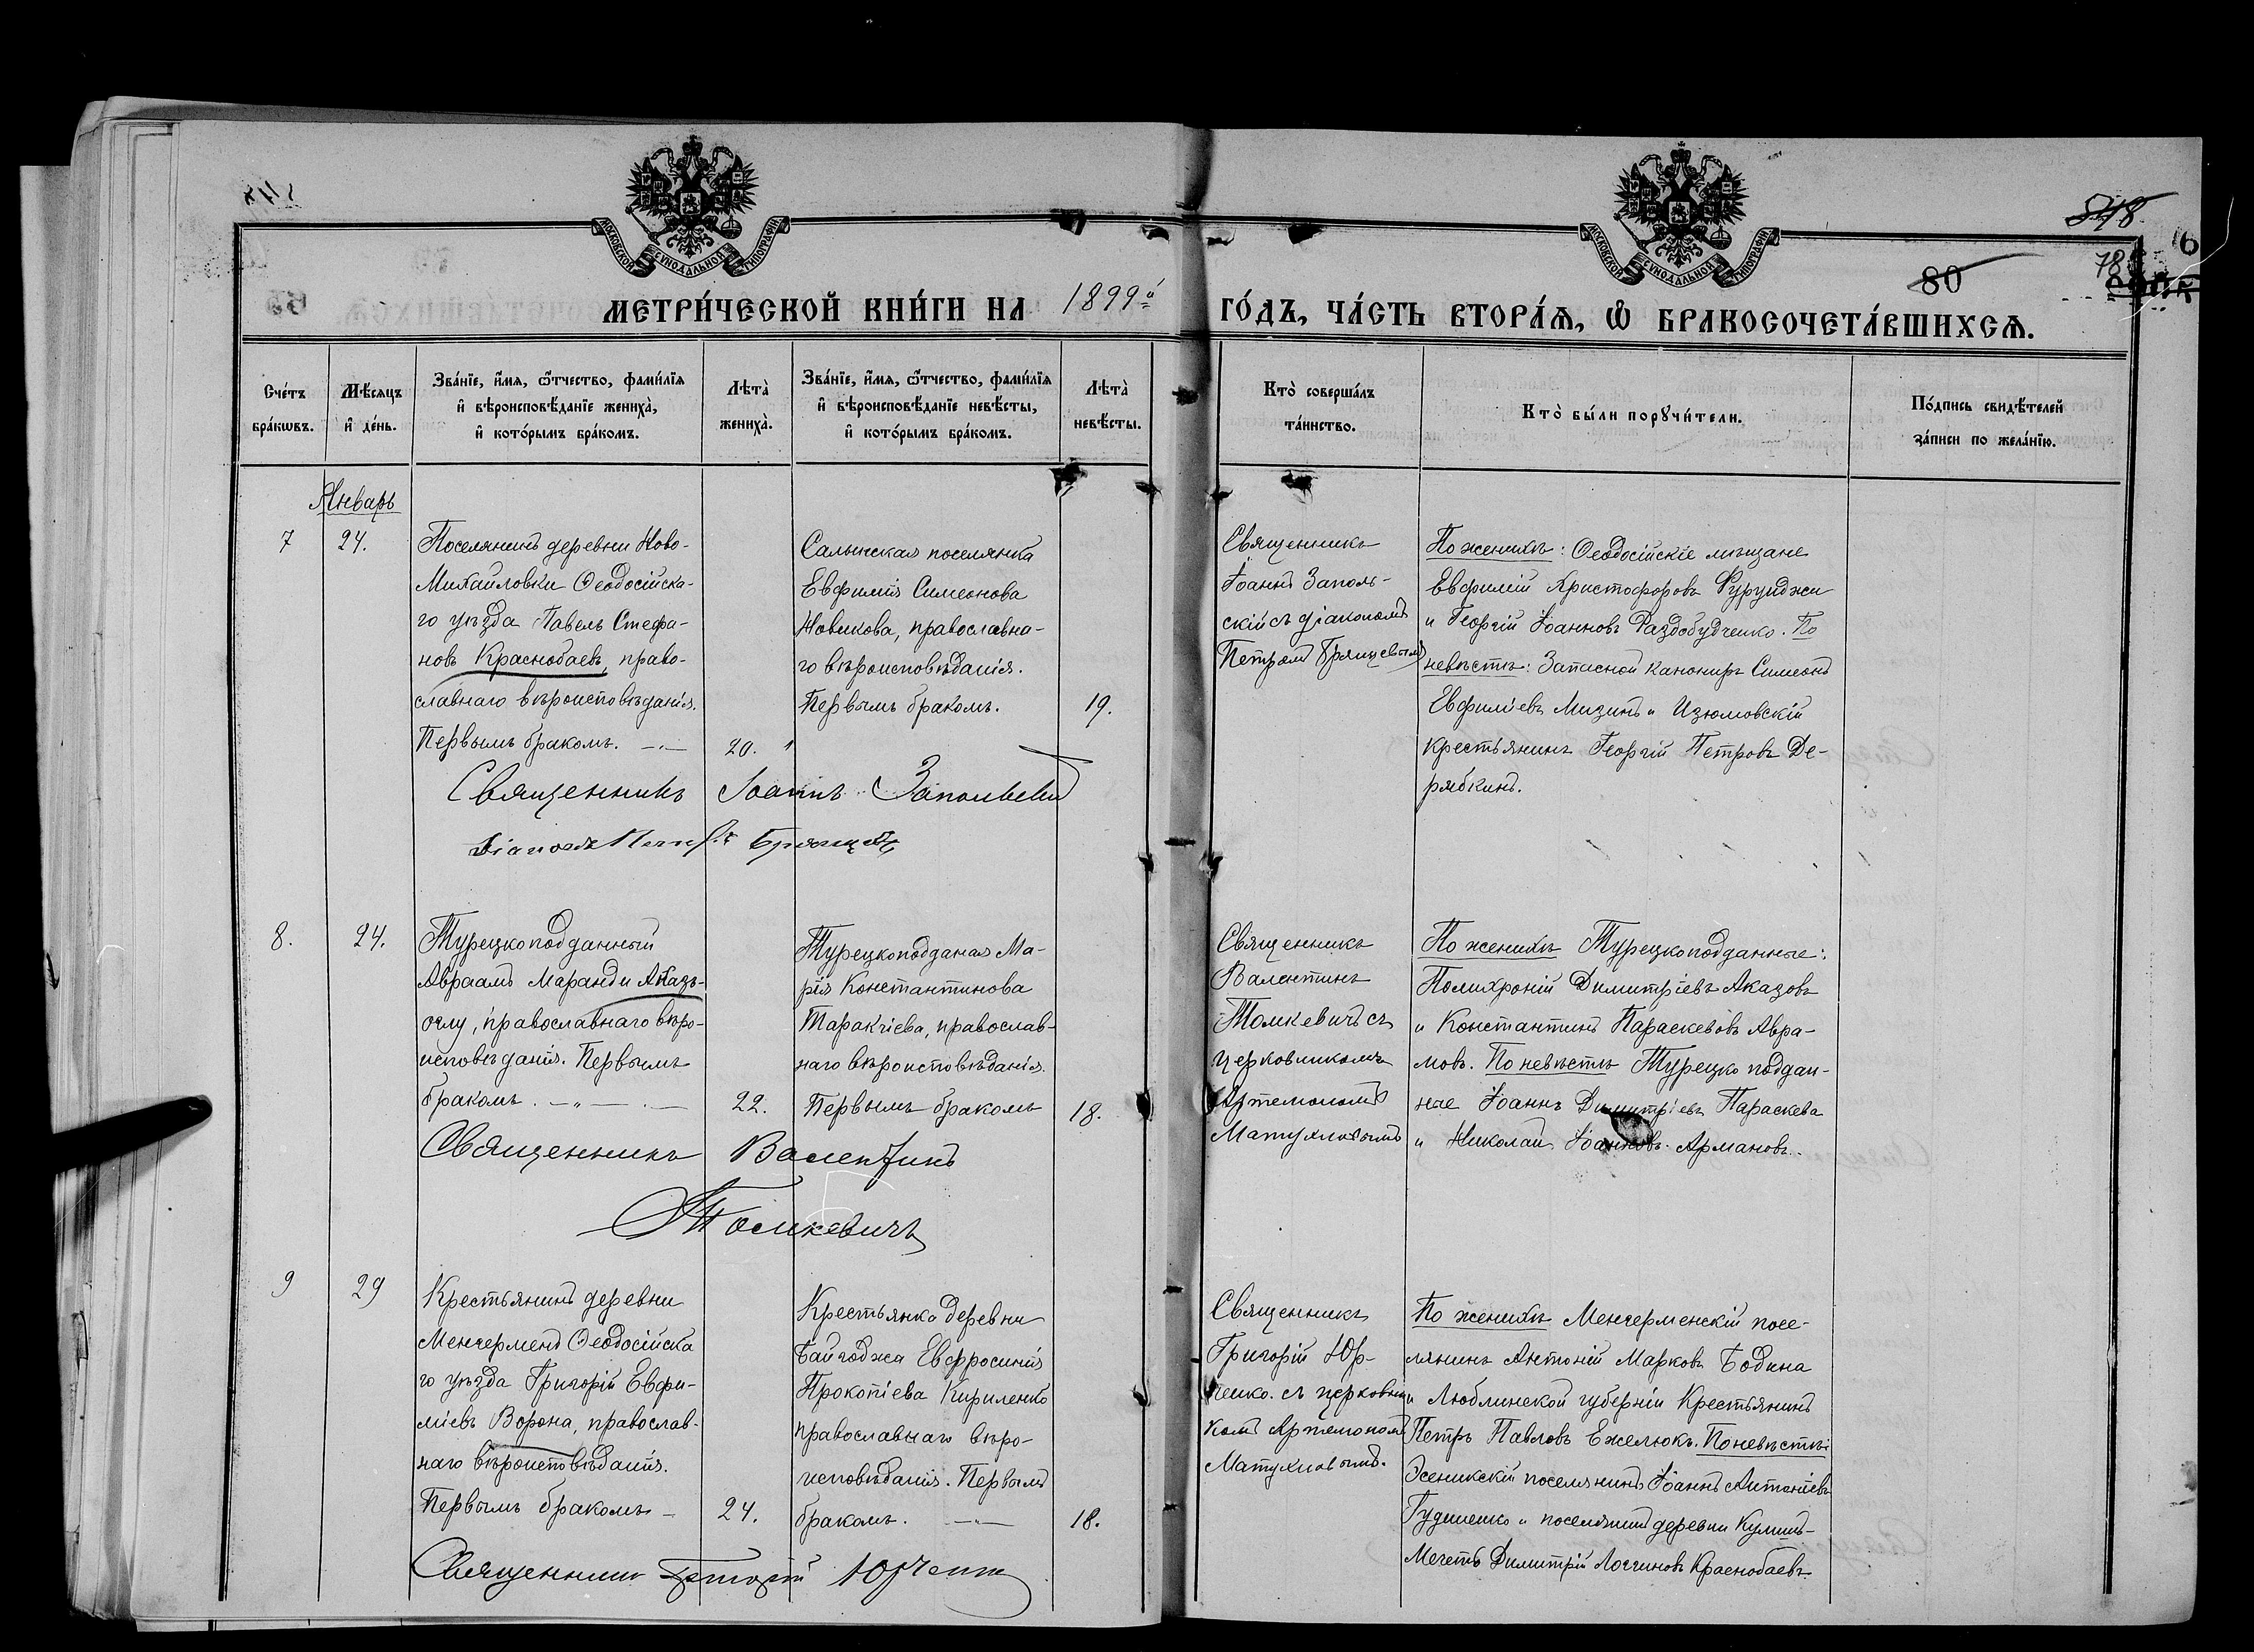 548
80
78
МОСКОВСКОЙ СѴНОДАЛЬНОЙ ТИПОГРАФІИ
МОСКОВСКОЙ СѴНОДАЛЬНОЙ ТИПОГРАФІИ
МЕТРИ́ЧЕСКОЙ КНИ́ГИ НА 1899й ГО́ДЪ, ЧА́СТЬ ВТОРА́Я, Ѿ БРАКОСОЧЕТА́ВШИХСЯ.
Сче́тъ бра́кѡвъ.
Мѣ́сяцъ и҆ де́нь.
Зва́нїе, и҆́мя, ѻ҆́тчество, фами́лїя
и҆ вѣроисповѣ́данїе жениха̀,
и҆ кото́рымъ бра́комъ.
Лѣта̀ жениха̀.
Зва́нїе, и҆́мя, ѻ҆́тчество, фами́лїя
и҆ вѣроисповѣ́данїе невѣ́сты,
и҆ кото́рымъ бра́комъ.
Лѣта̀ невѣ́сты.
Кто̀ соверша́лъ та́инство.
Кто̀ бы́ли порꙋчи́тели.
По́дпись свидѣ́телей за́писи по жела́нїю.
Январь
7
24.
Поселянинъ деревни Ново-
Михайловки Ѳеодосійска-
го уѣзда Павелъ Стефа-
новъ Краснобаевъ, право-
славнаго вѣроисповѣданія.
Первымъ бракомъ. —·—
20.
Салынская поселянка
Евфимія Симеонова
Новикова, православна-
го вѣроисповѣданія.
Первымъ бракомъ.
19.
Священникъ
Іоаннъ Заполь-
скій съ діакономъ
Петромъ Брянцевымъ
По женихѣ: Ѳеодосійскіе мѣщане
Евфимій Христофоровъ Фурунджи
и Георгій Іоанновъ Раздобудченко. По
невѣстѣ: Запасной канониръ Симеонъ
Евфиміевъ Мизинъ и Изюмовскій
крестьянинъ Георгій Петровъ Де-
рябкинъ.
Священникъ Іоаннъ Запольскій
Діаконъ Петръ Брянцевъ
8.
24.
Турецкоподданный
Авраамъ Маранди Аказъ-
оглу, православнаго вѣро-
исповѣданія. Первымъ
бракомъ. —„— . —
22.
Турецкоподданая Ма-
рія Константинова
Таракчіева, православ-
наго вѣроисповѣданія.
Первымъ бракомъ
18.
Священникъ
Валентинъ
Томкевичъ съ
церковникомъ
Артемономъ
Матухновымъ
По женихѣ Турецкоподданные:
Полихроній Димитріевъ Аказовъ
и Константинъ Параскевовъ Авра-
мовъ. По невѣстѣ Турецко поддан-
ные Іоаннъ Димитріевъ Параскева
и Николай Іоанновъ Армановъ.
Священникъ Валентинъ
Томкевичъ
9
29
Крестьянинъ деревни
Менгерменъ Ѳеодосійска
го уѣзда Григорій Евфи-
міевъ Ворона, православ-
наго вѣроисповѣданія.
Первымъ бракомъ —
24.
Крестьянка деревни
Байгоджа Евфросинія
Прокопіева Кириленко
православнаго вѣро-
исповѣданія. Первымъ
бракомъ. —„—
18.
Священникъ
Григорій Юр-
ченко. съ церковни
комъ Артемономъ
Матухновымъ.
По женихѣ Менгерменскій посе-
лянинъ Антоній Марковъ Бодина
и Люблинской губерніи Крестьянинъ
Петръ Павловъ Ежелюкъ. По невѣстѣ:
поселянинъ Іоаннъ Антоніевъ
и поселянинъ деревни
Мечеть Димитрій Логгиновъ Краснобаевъ.
Священникъ Григорій Юрченко